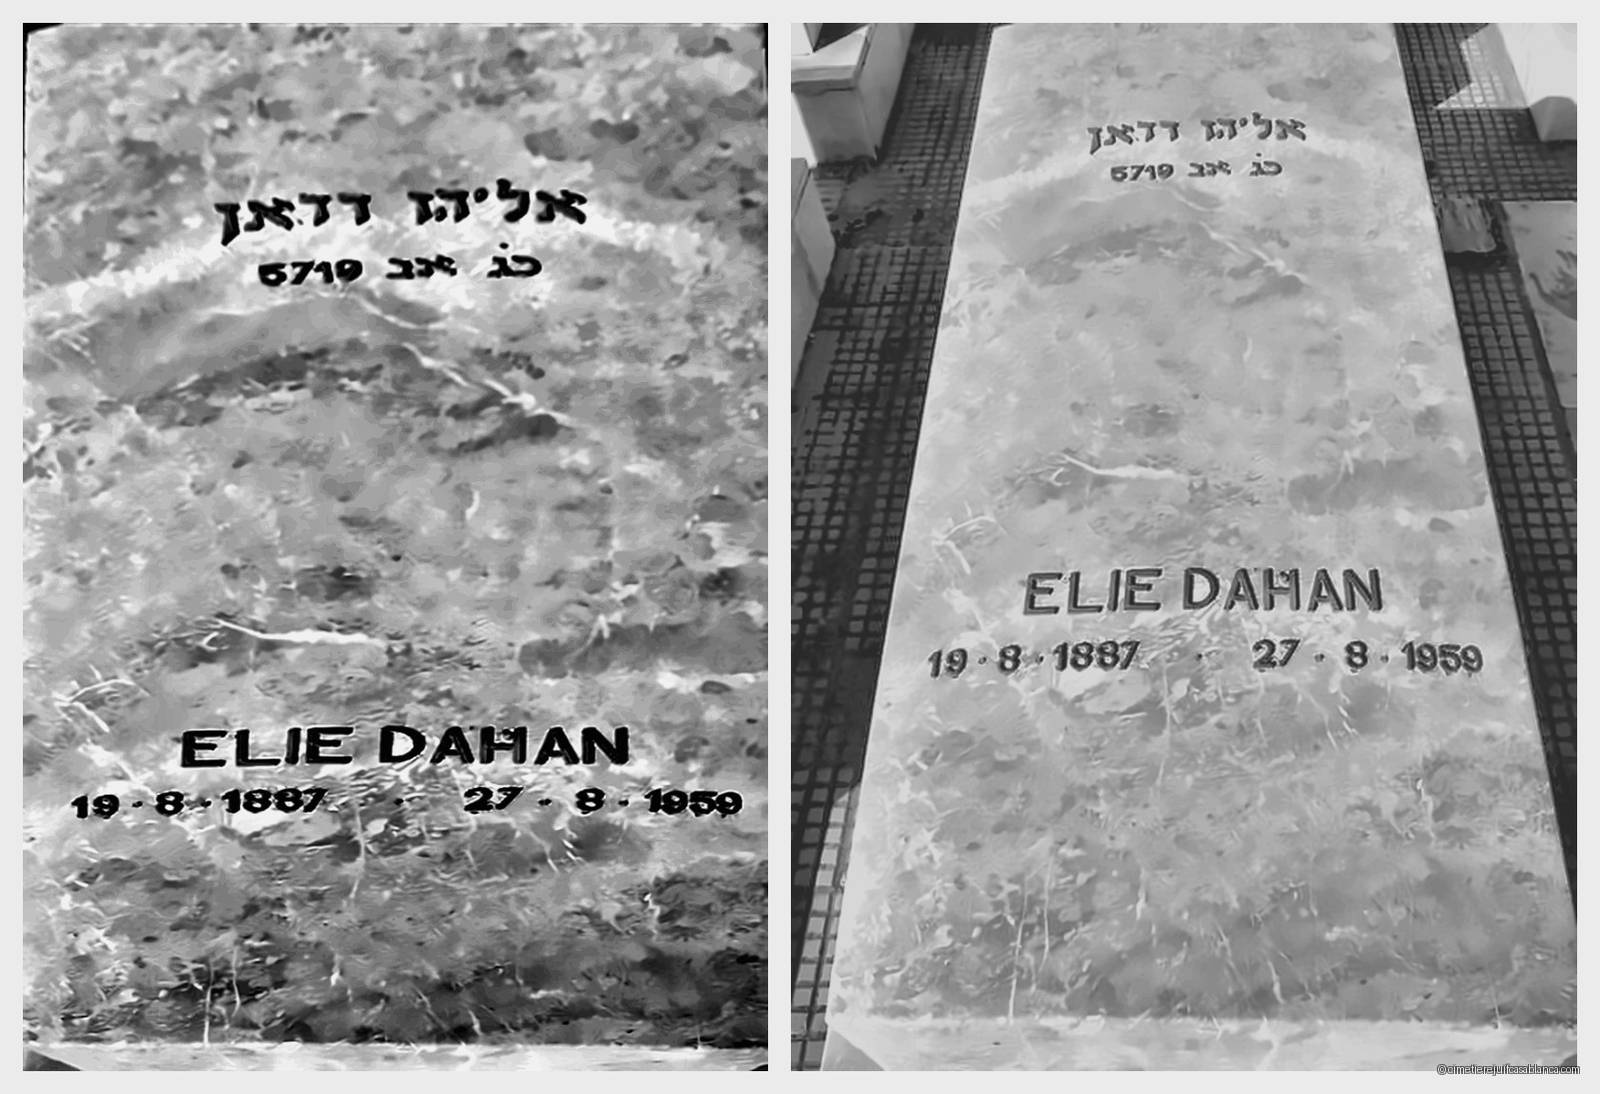 אליהו דדאן
כג אב 5719
ELIE DAHAN
19·8·1887 · 27·8·1959
אליהו דדאן
כג אב 5719
ELIE DAHAN
19·8·1887 · 27·8·1959
©cimetierejuifcasablanca.com